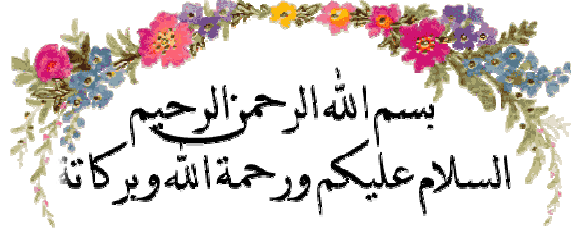 بسم الله الرحمن الرحيم
السلام عليكم ورحمة الله وبركاتة